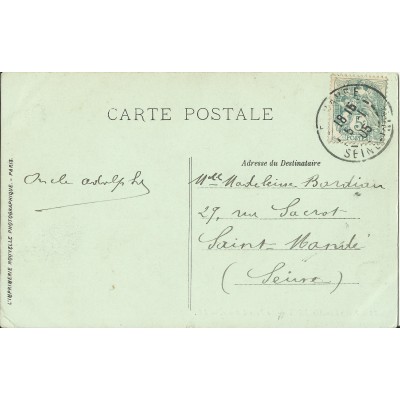 CARTE POSTALE
Adresse du Destinataire
Oncle Adolphe
Mlle Madeleine Bardian
29, rue Sacrot
Saint-Mandé
(Seine)
L'IMPRIMERIE NOUVELLE PHOTOGRAPHIQUE - PARIS.
18 15
SEINE